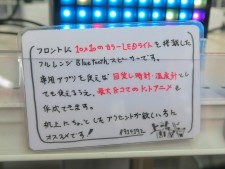 フロントに 10×10の カラーLEDライトを 搭載した
フルレンジ Bluetooth スピーカーです。
専用アプリを使えば 目覚し時計・温度計とし
ても使えるうえ、最大60コマのドットアニメも
作成できます。
机上に ちょっとしたアクセントが欲しい方に
オススメです！